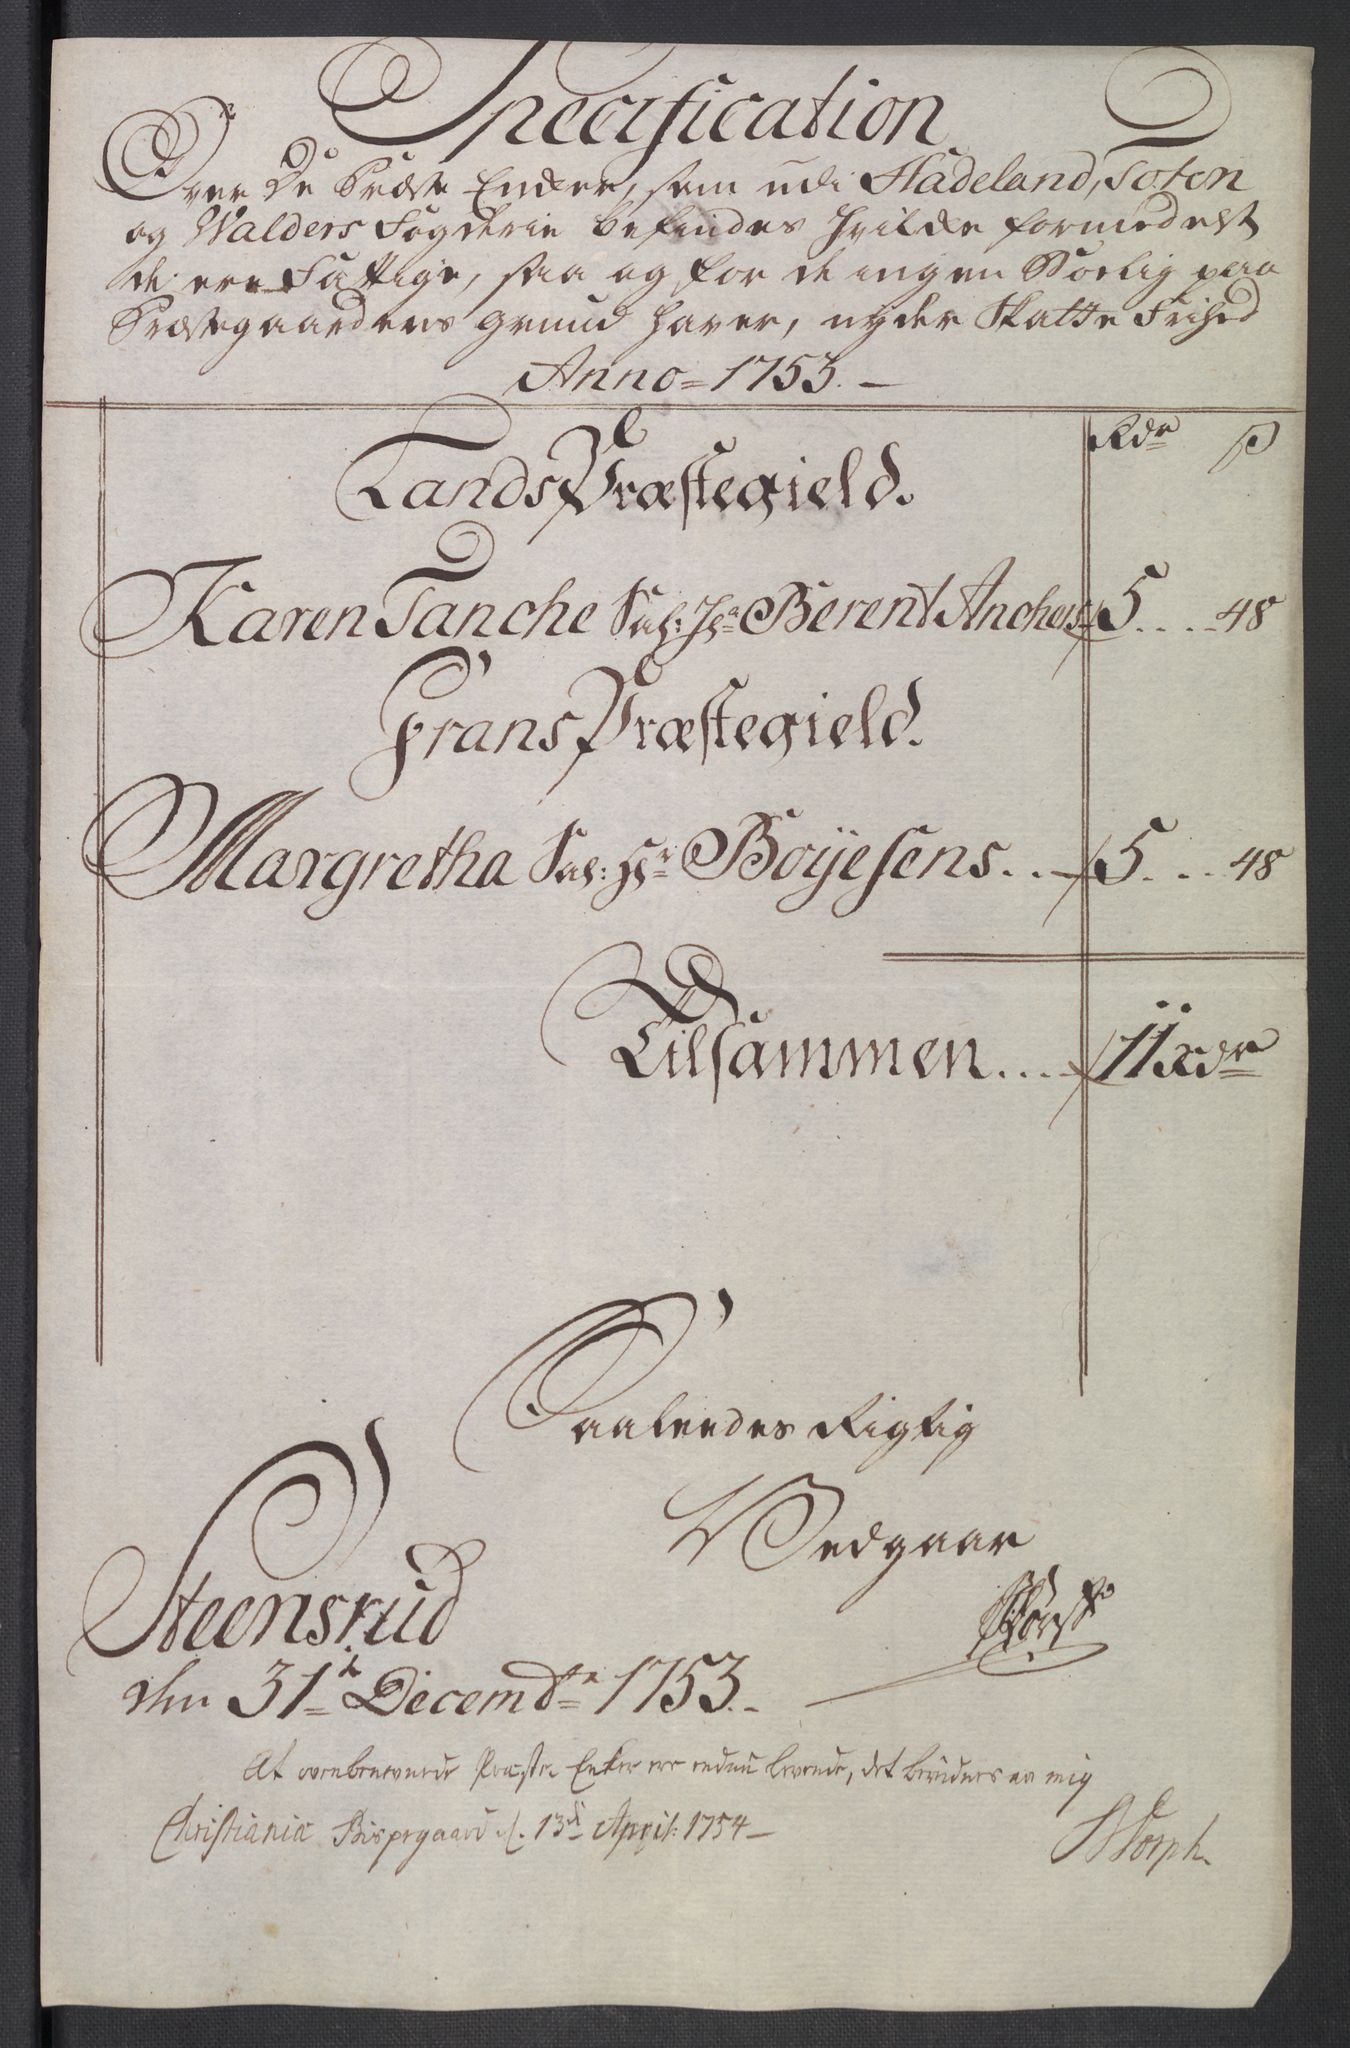 Specification
Over De Præste Encker, som udi Hadeland, Toten
og Walders Fogderie befindes hvilcke formedelst
de ere Fattige, saa og for de ingen Boelig paa
Præstegaardens grund haver, nyder Skatte Frihed
Anno = 1753. —
Rdr ß
Lands Præstegield.
Karen Tanche Sal: Hr Berent Anchers 5 . . . . 48
Grans Præstegield.
Margretha Sal: Hr Boÿesens . . . 5 . . . 48
Tilsammen . . . . 11 Rdr
Saaleedes Rigtig
Vedgaar
Steensrud
den 31te Decembr 1753. -
At ovenbenevnede Præste Enker ere endnu levende, det bevidnes av mig
Christiania Bispegaard d. 13de April: 1754 —